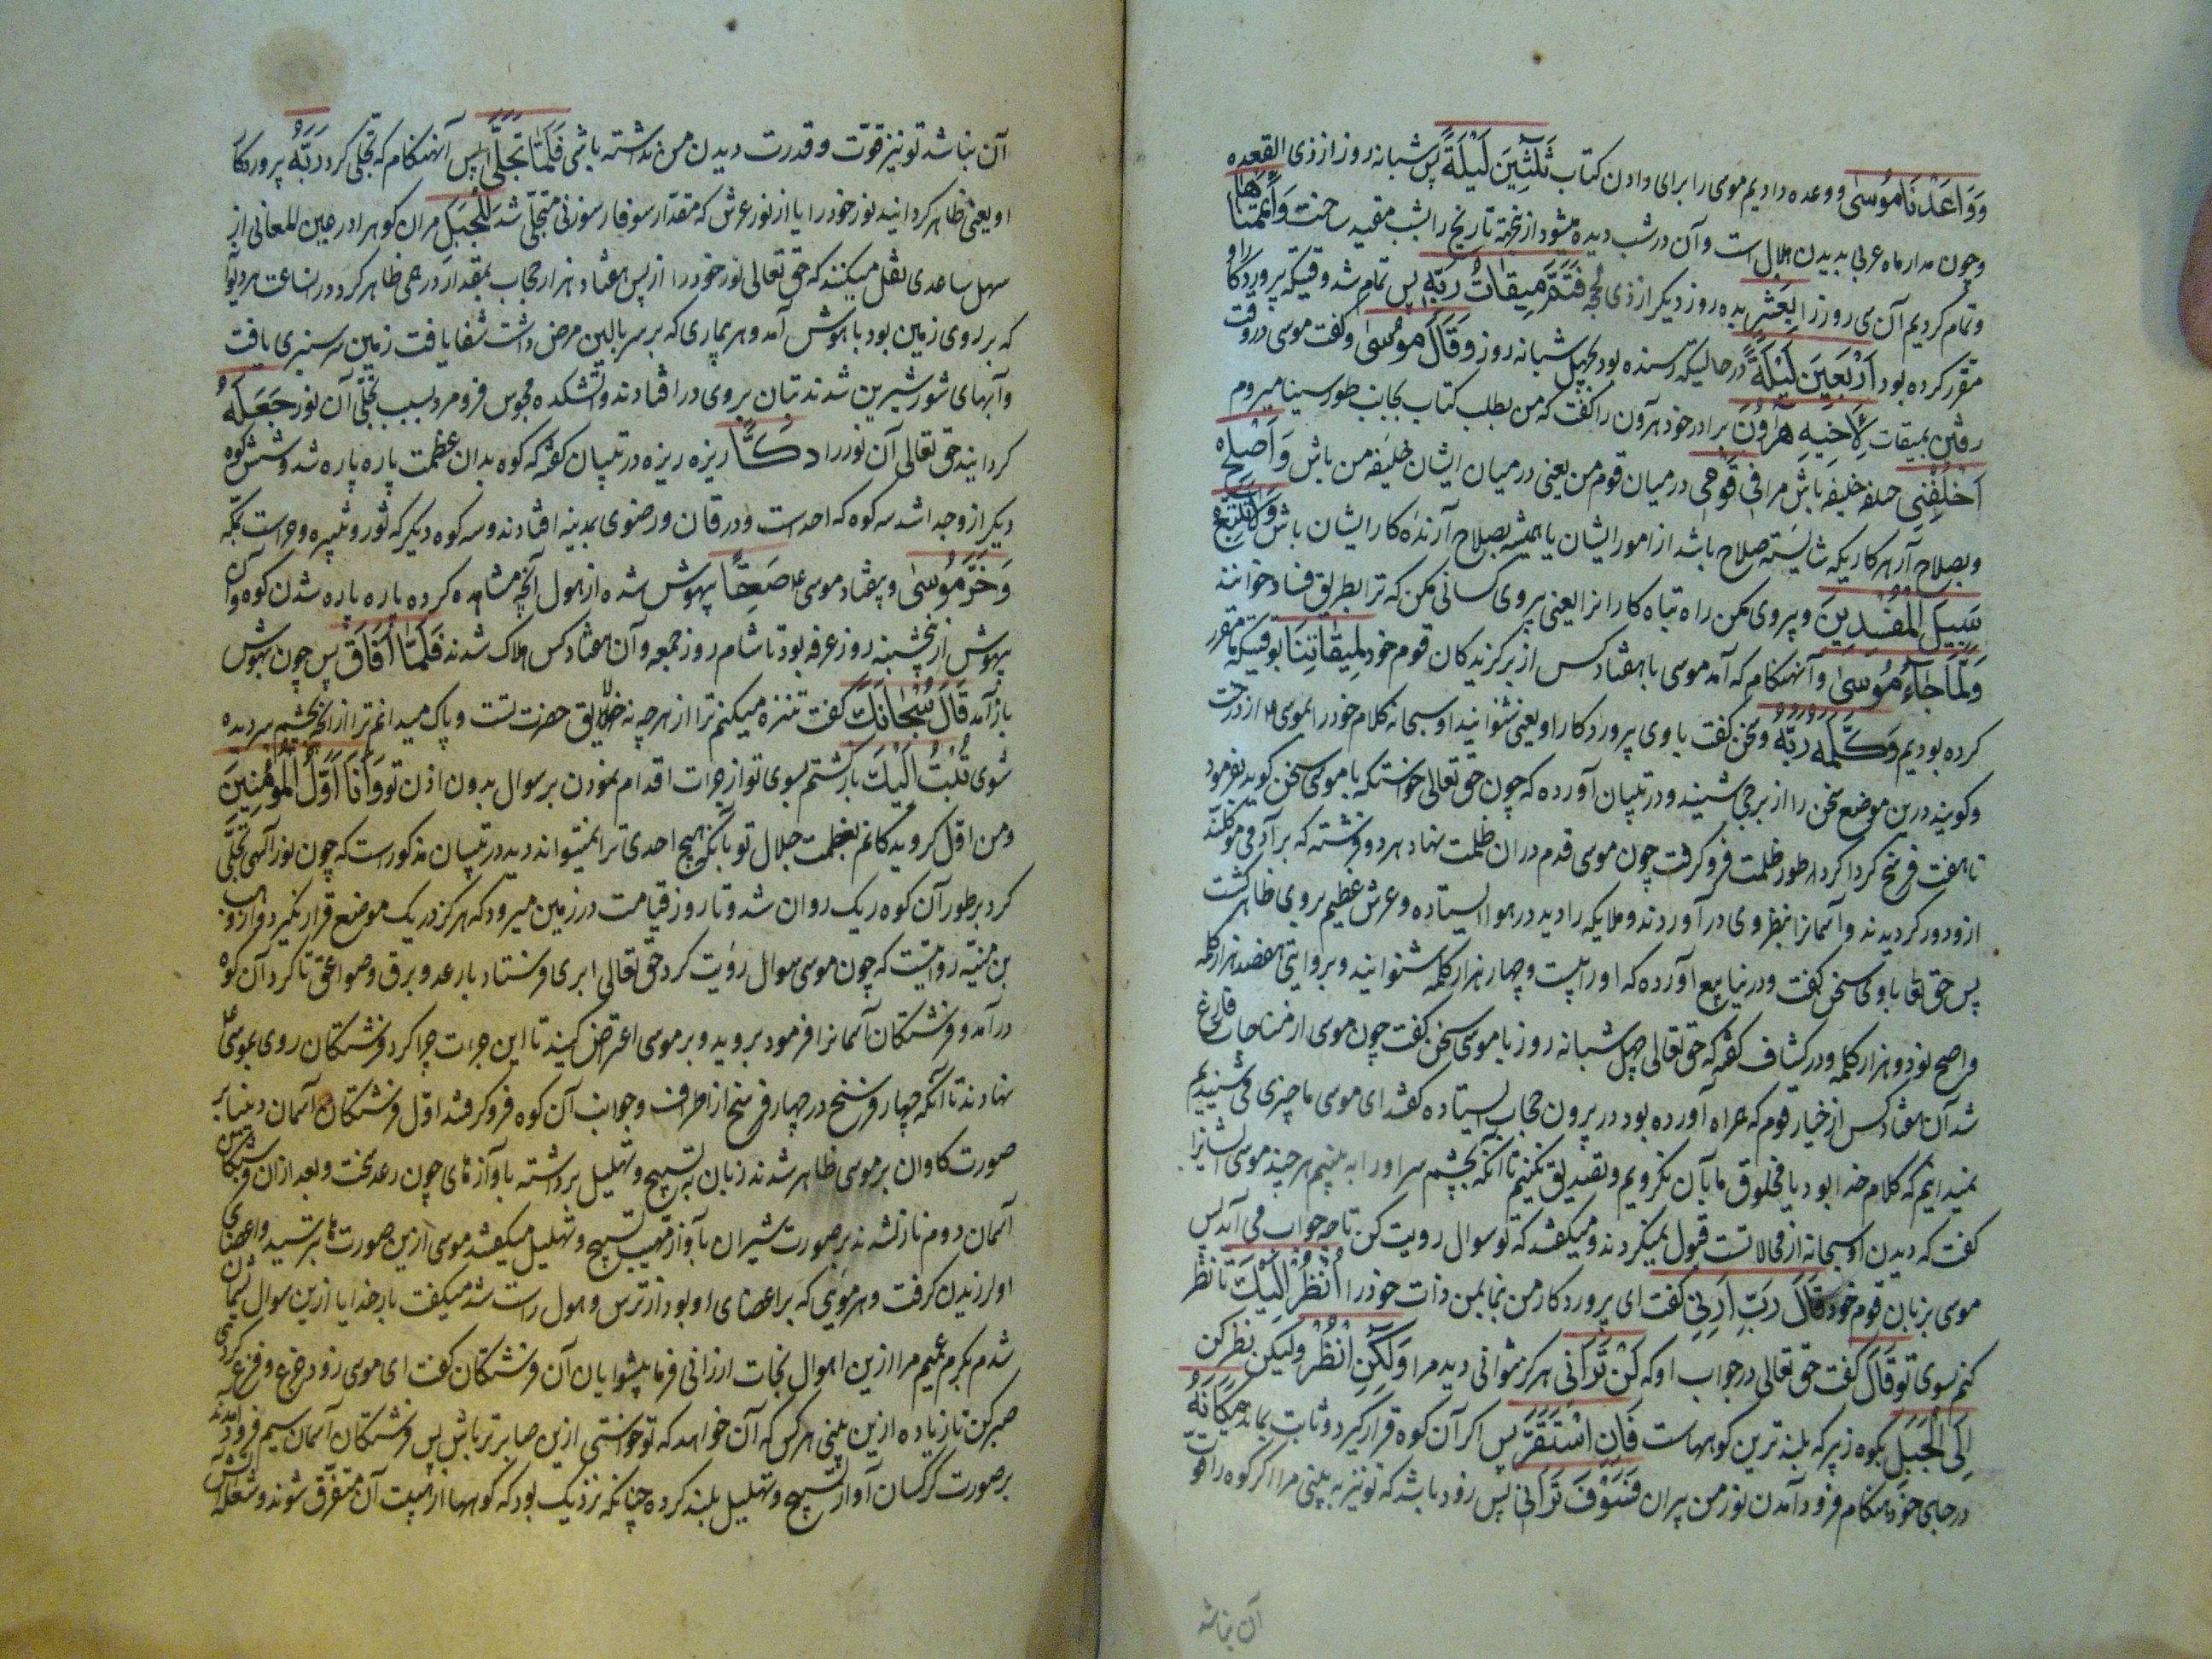 وَوَاعَدْنَا مُوسَىٰ و وعده دادیم موسی را برای دادن کتاب ثَلٰثِینَ لَیْلَةً پس شبانه روز از ذی القعده
وچون مدار ماه عربی بدیدن هلال است و آن در شب دیده میشود از نجهة تاریخ را بشب مقید ساخت وَاَتْمَمْنَاهَا
و تمام کردیم آن سی روز را بِعَشْرٍ بده روز دیگر از ذی لحجه فَتَمَّ مِیقَاتُ رَبِّهٖ پس تمام شد وقتیکه پروردگار او
مقرر کرده بود اَرْبَعِینَ لَیْلَةً در حالیکه رسنده بود بچهل شبانه روز وَقَالَ مُوسٰی و گفت موسی در وقت
رفتن بمیقات لِاَخِیهِ هٰرُونَ برادر خود هرون را گفت که من بطلب کتاب بجانب طور سینا میروم
اُخْلُفْنِی خلیفه باش مرا فِی قَوْمِی در میان قوم من یعنی در میان ایشان خلیفه من باش وَاَصْلِحْ
و بصلاح آر هر کاریکه شایسته صلاح باشد از امور ایشان یا همیشه بصلاح آرنده کار ایشان باش وَلَا تَتَّبِعْ
سَبِیلَ الْمُفْسِدِینَ و پیروی مکن راه تباه کارانرا یعنی پیروی کسانی مکن که ترا بطریق فساد خوانند
وَلَمَّا جَاءَ مُوسٰی و آنهنکام که آمد موسی با هفتاد کس از برگزیدگان قوم خود لِمِیقَاتِنَا بوقتیکه مقرر
کرده بودیم وَکَلَّمَهُ رَبُّهُ و سخن گفت با وی پروردگار او یعنی شنوانید او سبحانه کلام خود را بموسی ع از درخت
و کویند درین موضع سخن را از برجی شنید و در تبیان آورده که چون حق تعالی خواستکه با موسی سخن کوید بفرمود
تا هفت فرسخ کردا کرد طور ظلمت فرو گرفت چون موسی قدم دران ظلمت نهاد هر دو فرشته که بر آدمی موکلند
از و دور کردیدند و آسمانرا بنظر وی در آوردند و ملایکه را دید در هوا ایستاده و عرش عظیم بر وی ظاهر کشت
پس حق تعا با وی سخن گفت و در ینابیع آورده که او را بیست و چهار هزار کلمه شنوانید و بروایتی هفصد هزار کلمه
واصح نود و هزار کلمه و در کشاف گفته که حق تعالی چهل شبانه روز با موسی سخن گفت چون موسی از مناجات فارغ
شد آن هفتاد کس از خیار قوم که همراه آورده بود در بیرون حجاب ایستاده گفتند ای موسی ما چیزی می شنیدیم
نمیدانیم که کلام خدا بود یا مخلوق ما بآن نگرویم و تصدیق نکنیم تا آنکه بچشم سر او را به بینیم هر چند موسی ایشانرا
گفت که دیدن او سبحانه از محالاتست قبول نمیکردند و میگفتند که تو سوال رویت کن تا چه جواب می آید پس
موسی بزبان قوم خود قَالَ رَبِّ اَرِنِی گفت ای پروردگار من بنما بمن ذات خود را اَنْظُرْ اِلَیْکَ تا نظر
کنم بسوی تو قَالَ گفت حق تعالی در جواب او که لَنْ تَرَانِی هرگز نتوانی دید مرا وَلٰکِنِ انْظُرْ ولیکن نظر کن
اِلَی الْجَبَلِ بکوه زبیر که بلند ترین کوههاست فَاِنِ اسْتَقَرَّ پس اگر آن کوه قرار گیرد و ثابت بماند مَکَانَهُ
در جای خود هنگام فرود آمدن نور من بران فَسَوْفَ تَرَانِی پس زود باشد که تو نیز به بینی مرا اگر کوه را قوت
آن نباشد
آن نباشد تو نیز قوّت و قدرت دیدن من نداشته باشی فَلَمَّا تَجَلّٰی پس آنهنکام که تجلی کرد رَبُّهُ پروردگار
او یعنی ظاهر کردانید نور خود را یا از نور عرش که مقدار سوفار سوزنی متجلّی شد لِلْجَبَلِ مران کوه را در عین المعانی از
سهل ساعدی نقل میکنند که حق تعالی نور خود را از پس هفتاد هزار حجاب بمقدار درهمی ظاهر کرد و در انساعت هر دیوانه
که بر روی زمین بود با هوش آمد و هر بیماری که بر سر بالین مرض داشت شفا یافت زمین سر سبزی یافت
و آبهای شور شیرین شدند بتان بر وی در افتادند و آتشکده مجوس فرو مرد بسبب تجلّی آن نور جَعَلَهُ
کردانید حق تعالی آن نور را دَکًّا ریزه ریزه در تبیان گفته که کوه بدان عظمت پاره پاره شد و شش کوه
دیگر از و جدا شد سه کوه که احد است و ورقان و رضوی بمدینه افتادند و سه کوه دیگر که ثور و ثبیره و حراست بمکه
وَخَرَّ مُوسٰی و بیفتاد موسی ع صَعِقًا بیهوش شده از هول آنچه مشاهده کرده پاره پاره شدن کوه و آن
بیهوش از پنجشبنه روز عرفه بود تا شام روز جمعه و آن هفتاد کس هلاک شدند فَلَمَّا اَفَاقَ پس چون بهوش
باز آمد قَالَ سُبْحَانَکَ گفت تنزه میکنم ترا از هر چه نه لایق حضرت تست و پاک میدانم ترا از انکه بچشم سر دیده
شوی تُبْتُ اِلَیْکَ بازگشتم بسوی تو از جرات اقدام نمودن بر سوال بدون اذن تو وَاَنَا اَوَّلُ الْمُؤْمِنِینَ
و من اول گرویدگانم بعظمت جلال تو بآنکه هیچ احدی ترا نمیتواند دید در تبیان مذکور است که چون نور آلهی تجلّی
کرد بر طور آن کوه ریک روان شد و تا روز قیامت در زمین میرود که هرگز در یک موضع قرار نگیرد و از وهب
بن منبّه روایتست که چون موسی سوال رؤیت کرد حق تعالی ابری فرستاد با رعد و برق و صواعق تا کرد آن کوه
در آمد و فرشتکان آسمانرا فرمود بروید و بر موسی اعتراض کنید تا این جرات چرا کرد فرشتکان روی بموسی ع
نهادند تا آنکه چهار فرسخ در چهار فرسخ از اطراف و جوانب آن کوه فرو گرفتند اول فرشتکان آسمان دنیا بر
صورت کاوان بر موسی ظاهر شدند زبان به تسبیح و تهلیل برداشته با آوازهای چون رعد سخت و بعد ازان فرشتکان
آسمان دوم نازلشدند بر صورت شیران بآواز مهیب تسبیح و تهلیل میگفتند موسی ازین صورت ها بترسید و اعضای
او لرزیدن گرفت و هر مویی که بر اعضای او بود از ترس و هول راست شد میگفت بار خدایا ازین سوال پشیمان
شدم بکرم عمیم مرا ازین اهوال نجات ارزانی فرما پیشوایان آن فرشتکان گفت ای موسی زود جزع و فزع کردی
صبر کن تا زیاده ازین بینی هر کس که آن خواهد که تو خواستی ازین صابر تر باش پس فرشتکان آسمان سیم فرود آمدند
بر صورت کرکسان آواز تسبیح و تهلیل بلند کرده چنانکه نزدیک بود که کوهها از هیبت آن متفرّق شوند و شعله